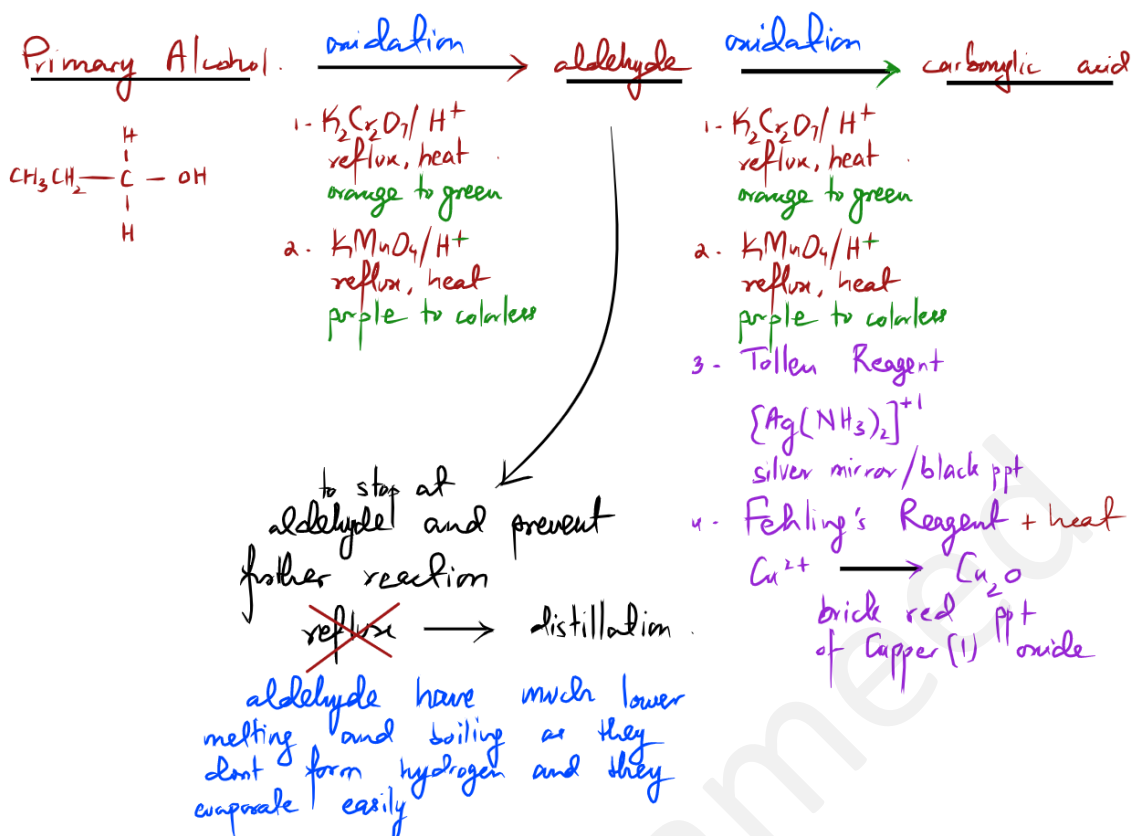 Primary Alcohol. oxidation aldehyde oxidation carboxylic acid
H
CH3CH2 — C — OH
H
1- K2Cr2O7/H+
reflux, heat
orange to green
2- KMnO4/H+
reflux, heat
purple to colorless
1- K2Cr2O7/H+
reflux, heat
orange to green
2- KMnO4/H+
reflux, heat
purple to colorless
3- Tollen Reagent
[Ag(NH3)2]+1
silver mirror/black ppt
4- Fehling's Reagent + heat
Cu2+ → Cu2O
brick red ppt
of Copper (1) oxide
to stop at
aldehyde and prevent
further reaction
reflux → distillation.
aldehyde have much lower
melting and boiling as they
dont form hydrogen and they
evaporate easily